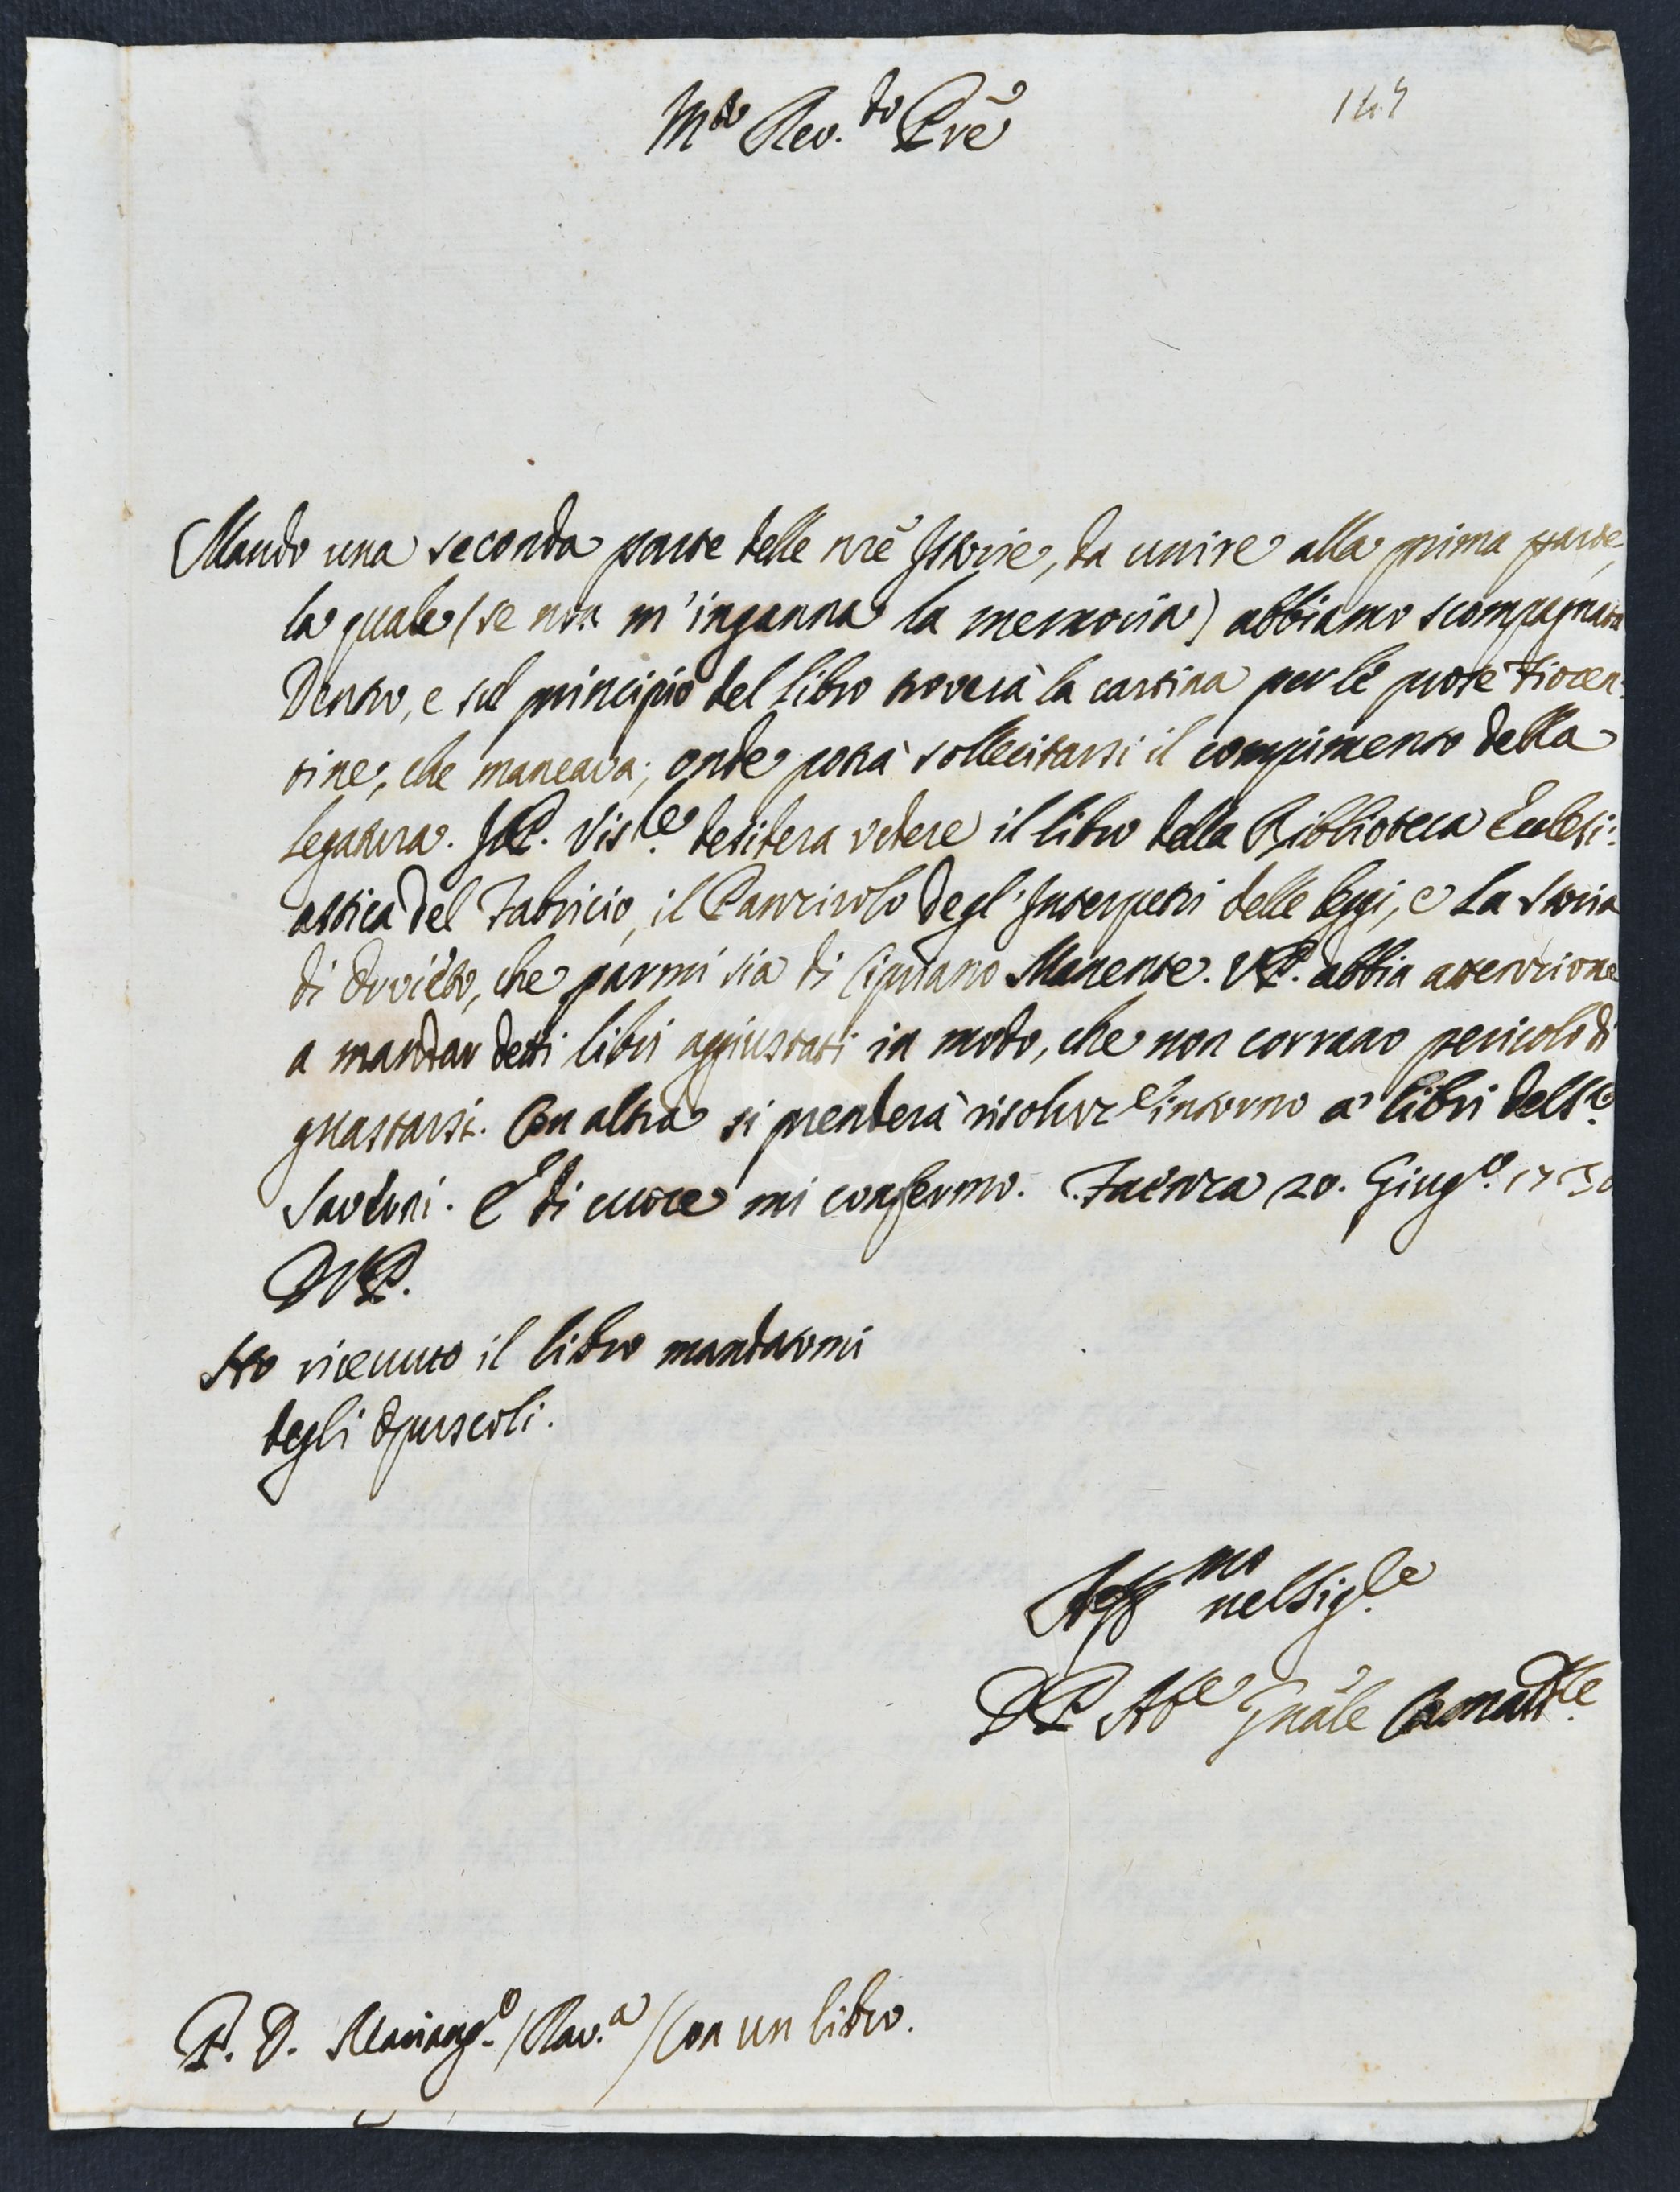 M.to Rev.do Prē
147
Mando una seconda parte delle nrē Istorie, da unire alla prima parte,
la quale (se non m'inganna la memoria) abbiamo scompagnata
Dentro, e sul principio del libro troverà la cartina per le prose Fioren-
tine, che mancava; onde potrà sollecitarsi il compimento della
legatura. Il P. Vis.le desidera vedere il libro della Biblioteca Eccles:
astica del Fabricio, il Panzirolo degl'Interpetri delle leggi, e la Storia
di Orvieto, che parmi sia di Cipriano Manente. V.P. abbia attenzione
a mandar detti libri aggiustati in modo, che non corrano pericolo di
guastarsi. Con altra si prenderà risoluz.e intorno a' libri del S.e
Savorni. E di cuore mi confermo. Faenza 20. Giug.o 1730
D V.P.
Ho ricevuto il libro mandatomi
degli Opuscoli.
Aff.mo nel Sig.re
D P Ab.e Gnāle Camald.le
P. D. Mariang.o / Rav.a / Con un libro.